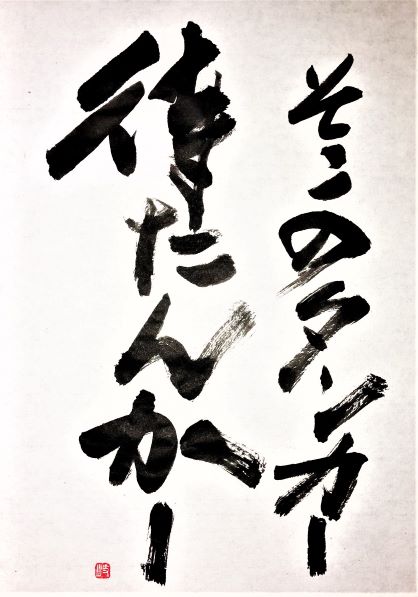 そこのタンカー
待たんかー